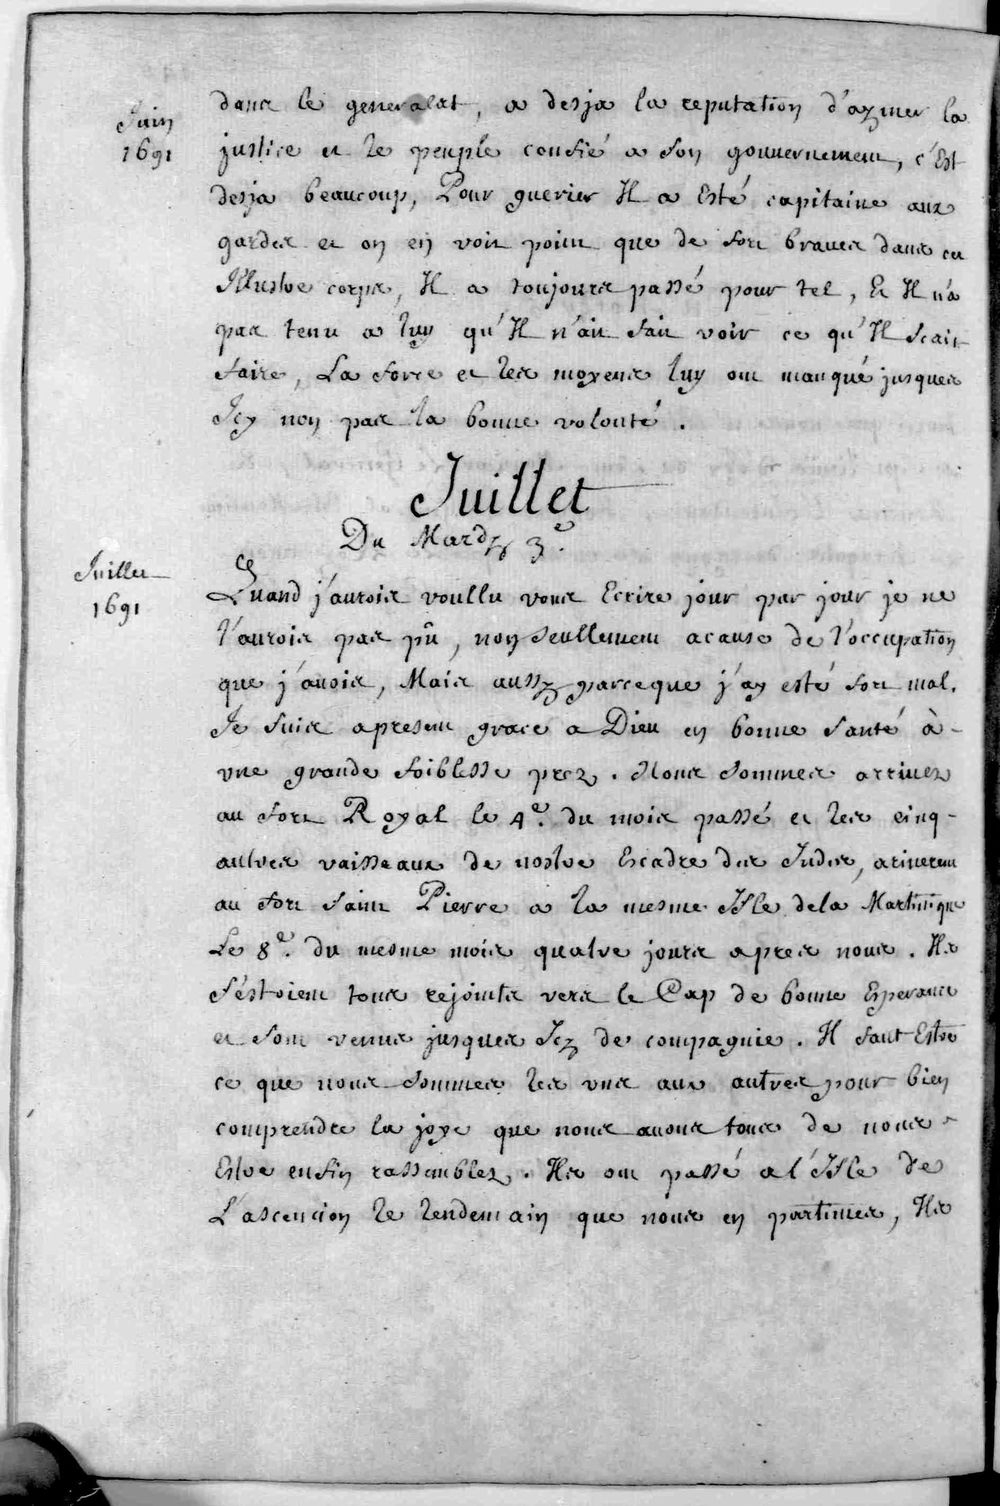 Juin
1691
dans le generalat, a desja la reputation d'aymer la
justice et le peuple confié a son gouvernement, c'est
desja beaucoup, Pour guerier Il a Esté capitaine aux
gardes et on en voit point que de fort braves dans cet
Illustre corps, Il a toujours passé pour tel, Et Il n'a
pas tenu a luy qu'Il n'ait fait voir ce qu'Il scait
faire, La force et les moyens luy ont manqué jusques
Icy non pas la bonne volonté.
Juillet
Du Mardy 3e.
Juillet
1691
Quand j'aurois voullu vous Ecrire jour par jour je ne
l'aurois pas pû, non seullement acause de l'occupation
que j'avois, Mais aussy parceque j'ay esté fort mal.
Je suis apresent grace a Dieu en bonne santé à
une grande foiblesse prez. Nous sommes arrivez
au fort Royal le 4e. du mois passé et les cinq
autres vaisseaux de nostre Escadre des Indes, ariverent
au fort Saint Pierre a la mesme Isle dela Martinique
Le 8e. du mesme mois quatre jours apres nous. Ils
s'éstoient tous rejoints vers le Cap de bonne Esperance
et sont venus jusques Icy de compagnie. Il faut Estre
ce que nous sommes les uns aux autres pour bien
comprendre la joye que nous avons tous de nous
Estre enfin rassemblez. Ils ont passé a l'Isle de
L'ascencion le lendemain que nous en partimes, Ils